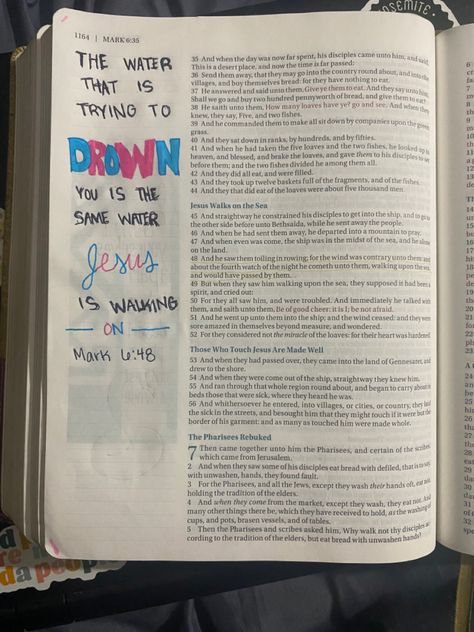 1164 | MARK 6:35
THE WATER
THAT IS
TRYING TO
DROWN
YOU IS THE
SAME WATER
Jesus
IS WALKING
ON
Mark 6:48
35 And when the day was now far spent, his disciples came unto him, and said,
This is a desert place, and now the time is far passed:
36 Send them away, that they may go into the country round about, and into the
villages, and buy themselves bread: for they have nothing to eat.
37 He answered and said unto them, Give ye them to eat. And they say unto him,
Shall we go and buy two hundred pennyworth of bread, and give them to eat?
38 He saith unto them, How many loaves have ye? go and see. And when they
knew, they say, Five, and two fishes.
39 And he commanded them to make all sit down by companies upon the green
grass.
40 And they sat down in ranks, by hundreds, and by fifties.
41 And when he had taken the five loaves and the two fishes, he looked up to
heaven, and blessed, and brake the loaves, and gave them to his disciples to set
before them; and the two fishes divided he among them all.
42 And they did all eat, and were filled.
43 And they took up twelve baskets full of the fragments, and of the fishes.
44 And they that did eat of the loaves were about five thousand men.
Jesus Walks on the Sea
45 And straightway he constrained his disciples to get into the ship, and to go to
the other side before unto Bethsaida, while he sent away the people.
46 And when he had sent them away, he departed into a mountain to pray.
47 And when even was come, the ship was in the midst of the sea, and he alone
on the land.
48 And he saw them toiling in rowing; for the wind was contrary unto them: and
about the fourth watch of the night he cometh unto them, walking upon the sea,
and would have passed by them.
49 But when they saw him walking upon the sea, they supposed it had been a
spirit, and cried out:
50 For they all saw him, and were troubled. And immediately he talked with
them, and saith unto them, Be of good cheer: it is I; be not afraid.
51 And he went up unto them into the ship; and the wind ceased: and they were
sore amazed in themselves beyond measure, and wondered.
52 For they considered not the miracle of the loaves: for their heart was hardened.
Those Who Touch Jesus Are Made Well
53 And when they had passed over, they came into the land of Gennesaret, and
drew to the shore.
54 And when they were come out of the ship, straightway they knew him,
55 And ran through that whole region round about, and began to carry about in
beds those that were sick, where they heard he was.
56 And whithersoever he entered, into villages, or cities, or country, they laid
the sick in the streets, and besought him that they might touch if it were but the
border of his garment: and as many as touched him were made whole.
The Pharisees Rebuked
7 Then came together unto him the Pharisees, and certain of the scribes,
which came from Jerusalem.
2 And when they saw some of his disciples eat bread with defiled, that is to say,
with unwashen, hands, they found fault.
3 For the Pharisees, and all the Jews, except they wash their hands oft, eat not,
holding the tradition of the elders.
4 And when they come from the market, except they wash, they eat not. And
many other things there be, which they have received to hold, as the washing of
cups, and pots, brasen vessels, and of tables.
5 Then the Pharisees and scribes asked him, Why walk not thy disciples ac-
cording to the tradition of the elders, but eat bread with unwashen hands?
OSEMITE
da people